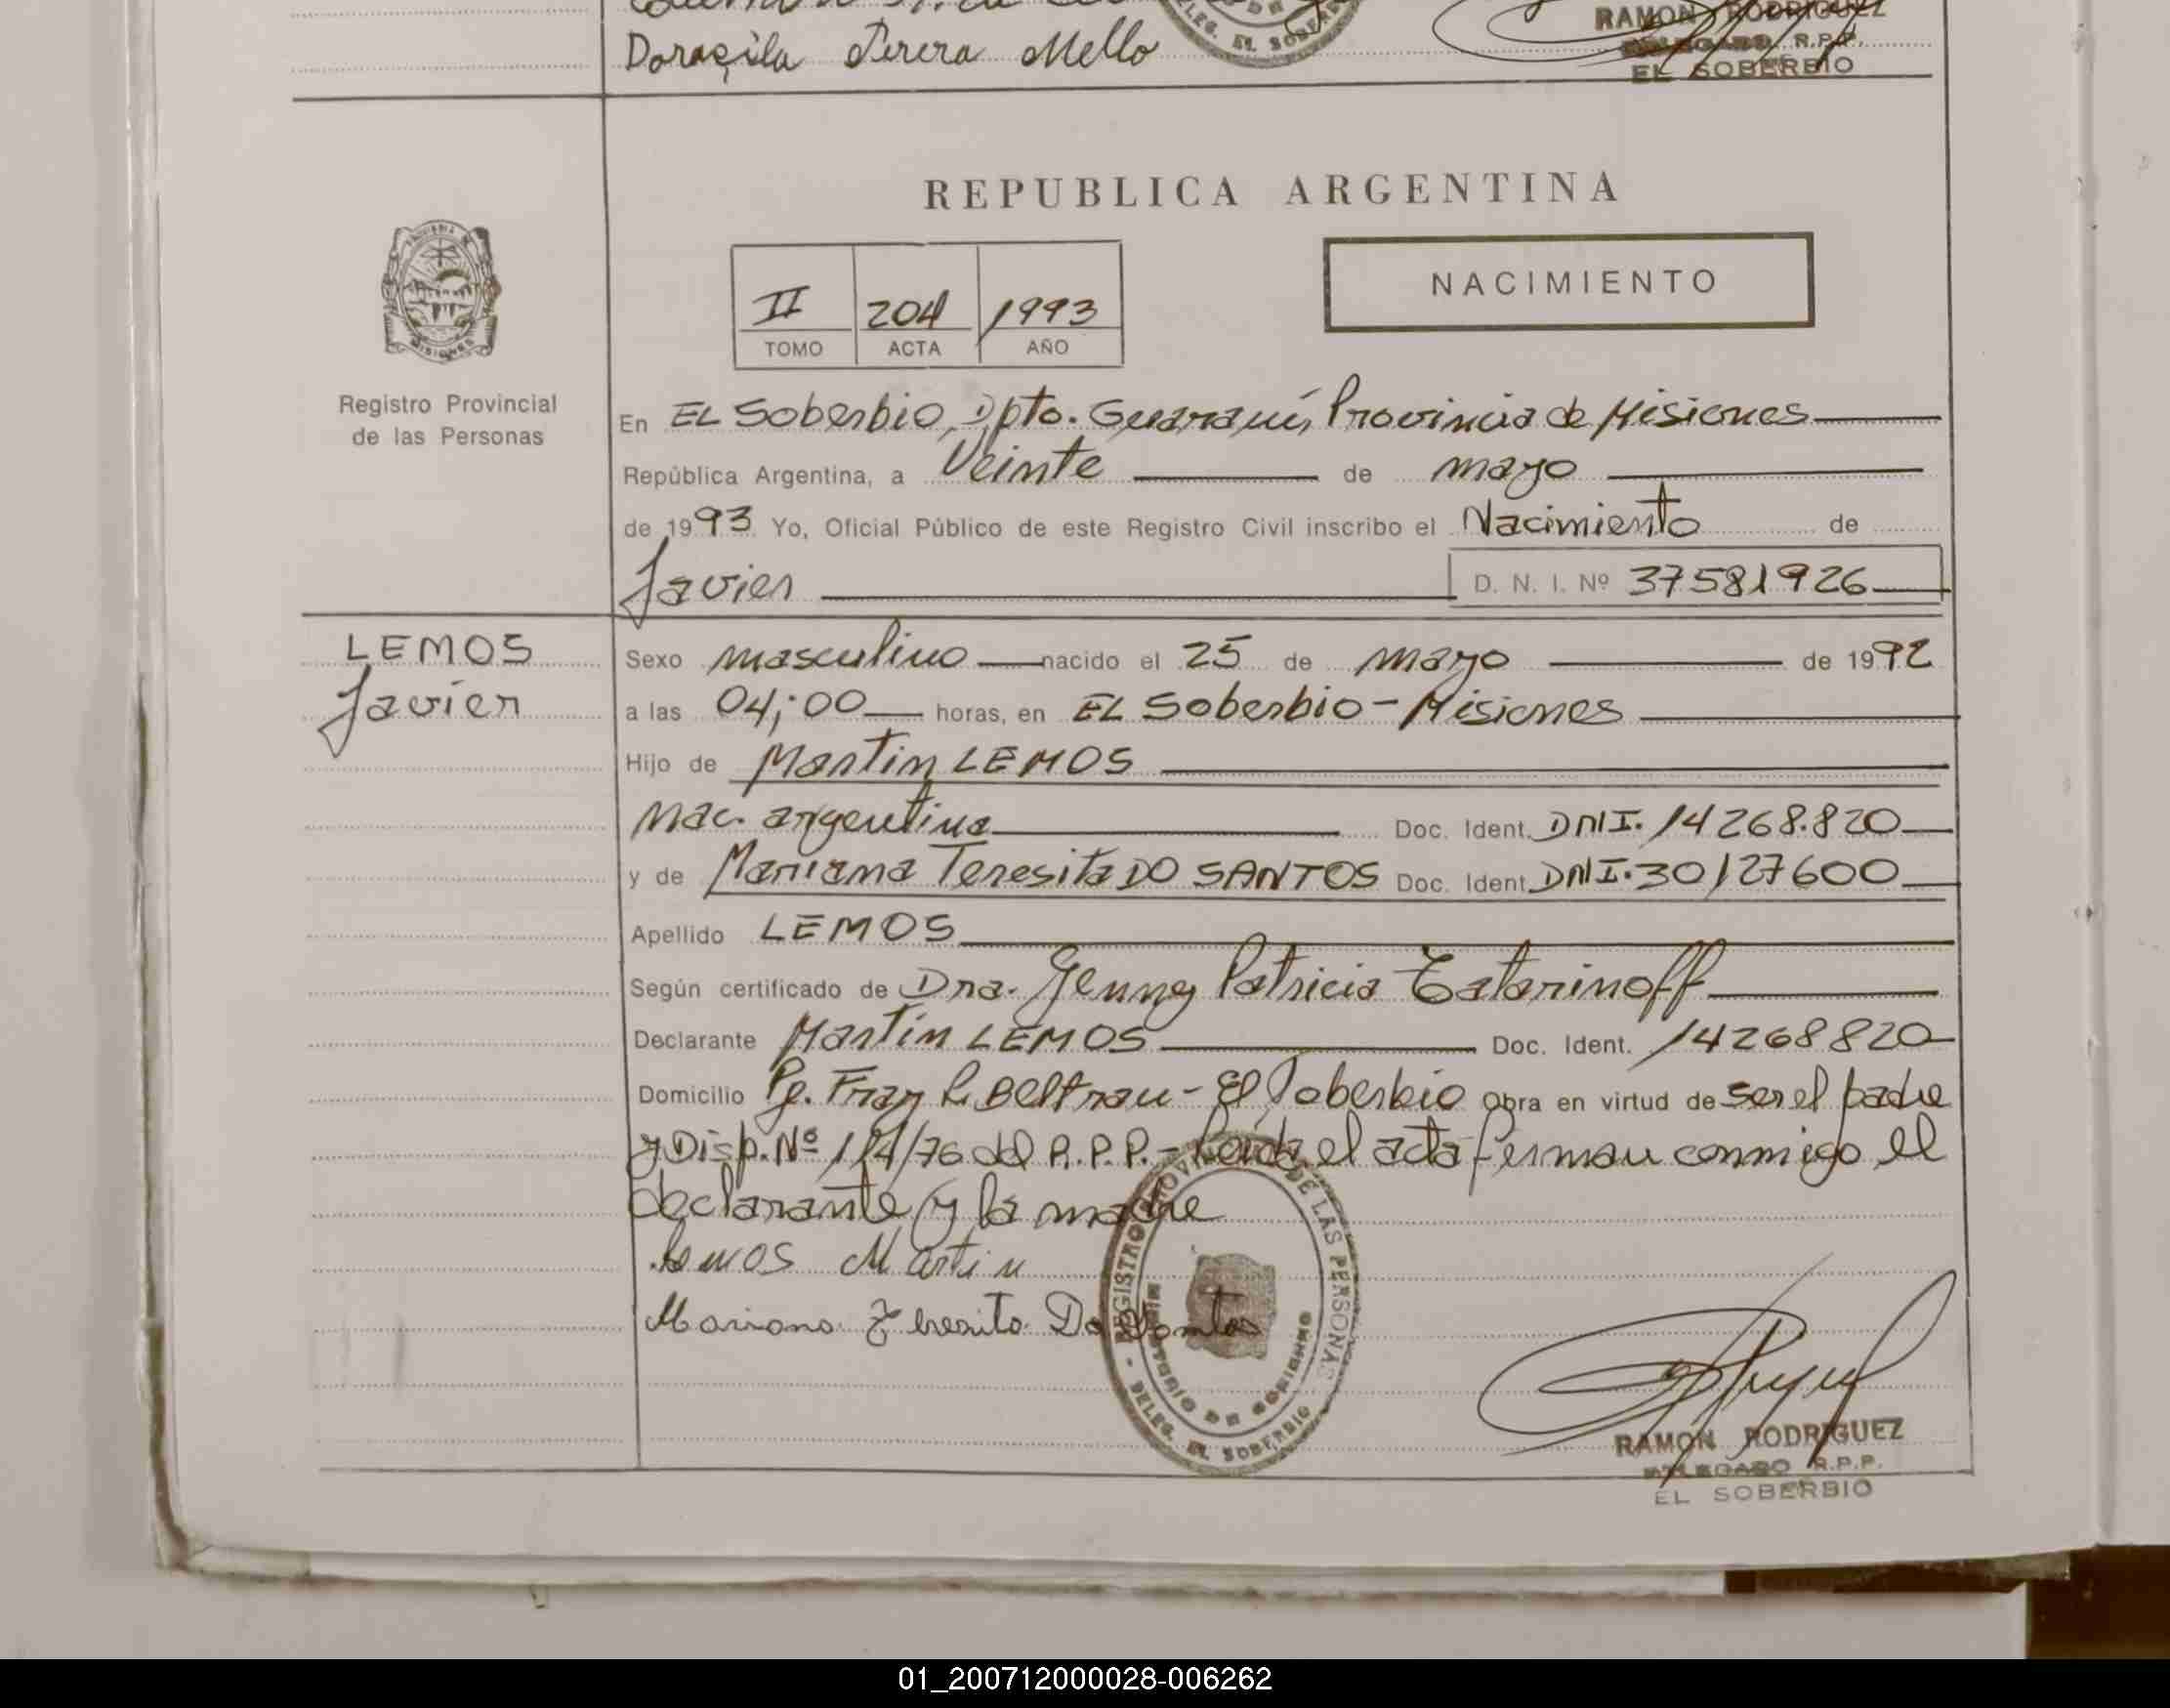 Doraçila Pereira Mello
RAMON RODRIGUEZ
DELEGADO R.P.P.
EL SOBERBIO
DELEG. EL SOBERBIO
REPUBLICA ARGENTINA
NACIMIENTO
II 204 1993
TOMO ACTA AÑO
MISIONES
Registro Provincial
de las Personas
En EL Soberbio, Dpto. Guaraní, Provincia de Misiones
República Argentina, a Veinte de mayo
de 1993 Yo, Oficial Público de este Registro Civil inscribo el Nacimiento de
Javier D. N. I. Nº 37581926
LEMOS
Javier
Sexo masculino nacido el 25 de mayo de 1992
a las 04;00 horas, en EL Soberbio - Misiones
Hijo de Martin LEMOS
Nac. argentina Doc. Ident. DNI. 14268.820
y de Mariana Teresita DO SANTOS Doc. Ident. DNI. 30127600
Apellido LEMOS
Según certificado de Dra. Jenny Patricia Tatarinoff
Declarante Martin LEMOS Doc. Ident. 14268820
Domicilio Pje. Fray L. Beltran - El Soberbio Obra en virtud de ser el padre
y Disp. Nº 114/76 del R.P.P. - Leida el acta firman conmigo el
declarante y la madre
Lemos Martin
Mariana Teresita Do Santos
REGISTRO PROVINCIAL DE LAS PERSONAS
DELEG. EL SOBERBIO
RAMON RODRIGUEZ
DELEGADO R.P.P.
EL SOBERBIO
01_200712000028-006262